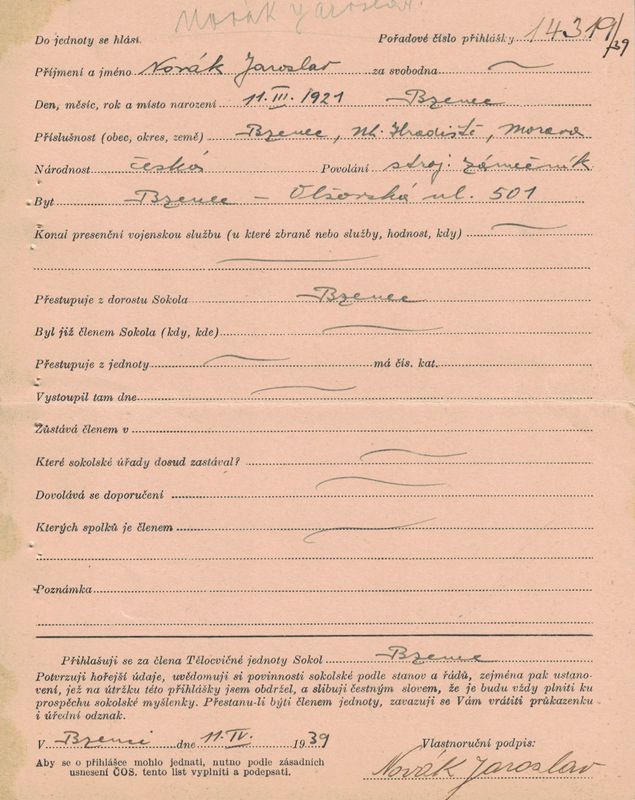 Novák Jaroslav.
Do jednoty se hlásí. Pořadové číslo přihlášky 14319/39
Příjmení a jméno Novák Jaroslav za svobodna
Den, měsíc, rok a místo narození 11. III. 1921 Bzenec
Příslušnost (obec, okres, země) Bzenec, Uh. Hradiště, Morava
Národnost česká Povolání stroj. zámečník
Byt Bzenec – Olšovská ul. 501
Konal presenční vojenskou službu (u které zbraně nebo služby, hodnost, kdy)
Přestupuje z dorostu Sokola Bzenec
Byl již členem Sokola (kdy, kde)
Přestupuje z jednoty má čís. kat.
Vystoupil tam dne
Zůstává členem v
Které sokolské úřady dosud zastával?
Dovolává se doporučení
Kterých spolků je členem
Poznámka
Přihlašuji se za člena Tělocvičné jednoty Sokol Bzenec
Potvrzuji hořejší údaje, uvědomuji si povinnosti sokolské podle stanov a řádů, zejména pak ustano-
vení, jež na útržku této přihlášky jsem obdržel, a slibuji čestným slovem, že je budu vždy plniti ku
prospěchu sokolské myšlenky. Přestanu-li býti členem jednoty, zavazuji se Vám vrátiti průkazenku
i úřední odznak.
V Bzenci dne 11. IV. 1939 Vlastnoruční podpis:
Aby se o přihlášce mohlo jednati, nutno podle zásadních
usnesení ČOS. tento list vyplniti a podepsati.
Novák Jaroslav